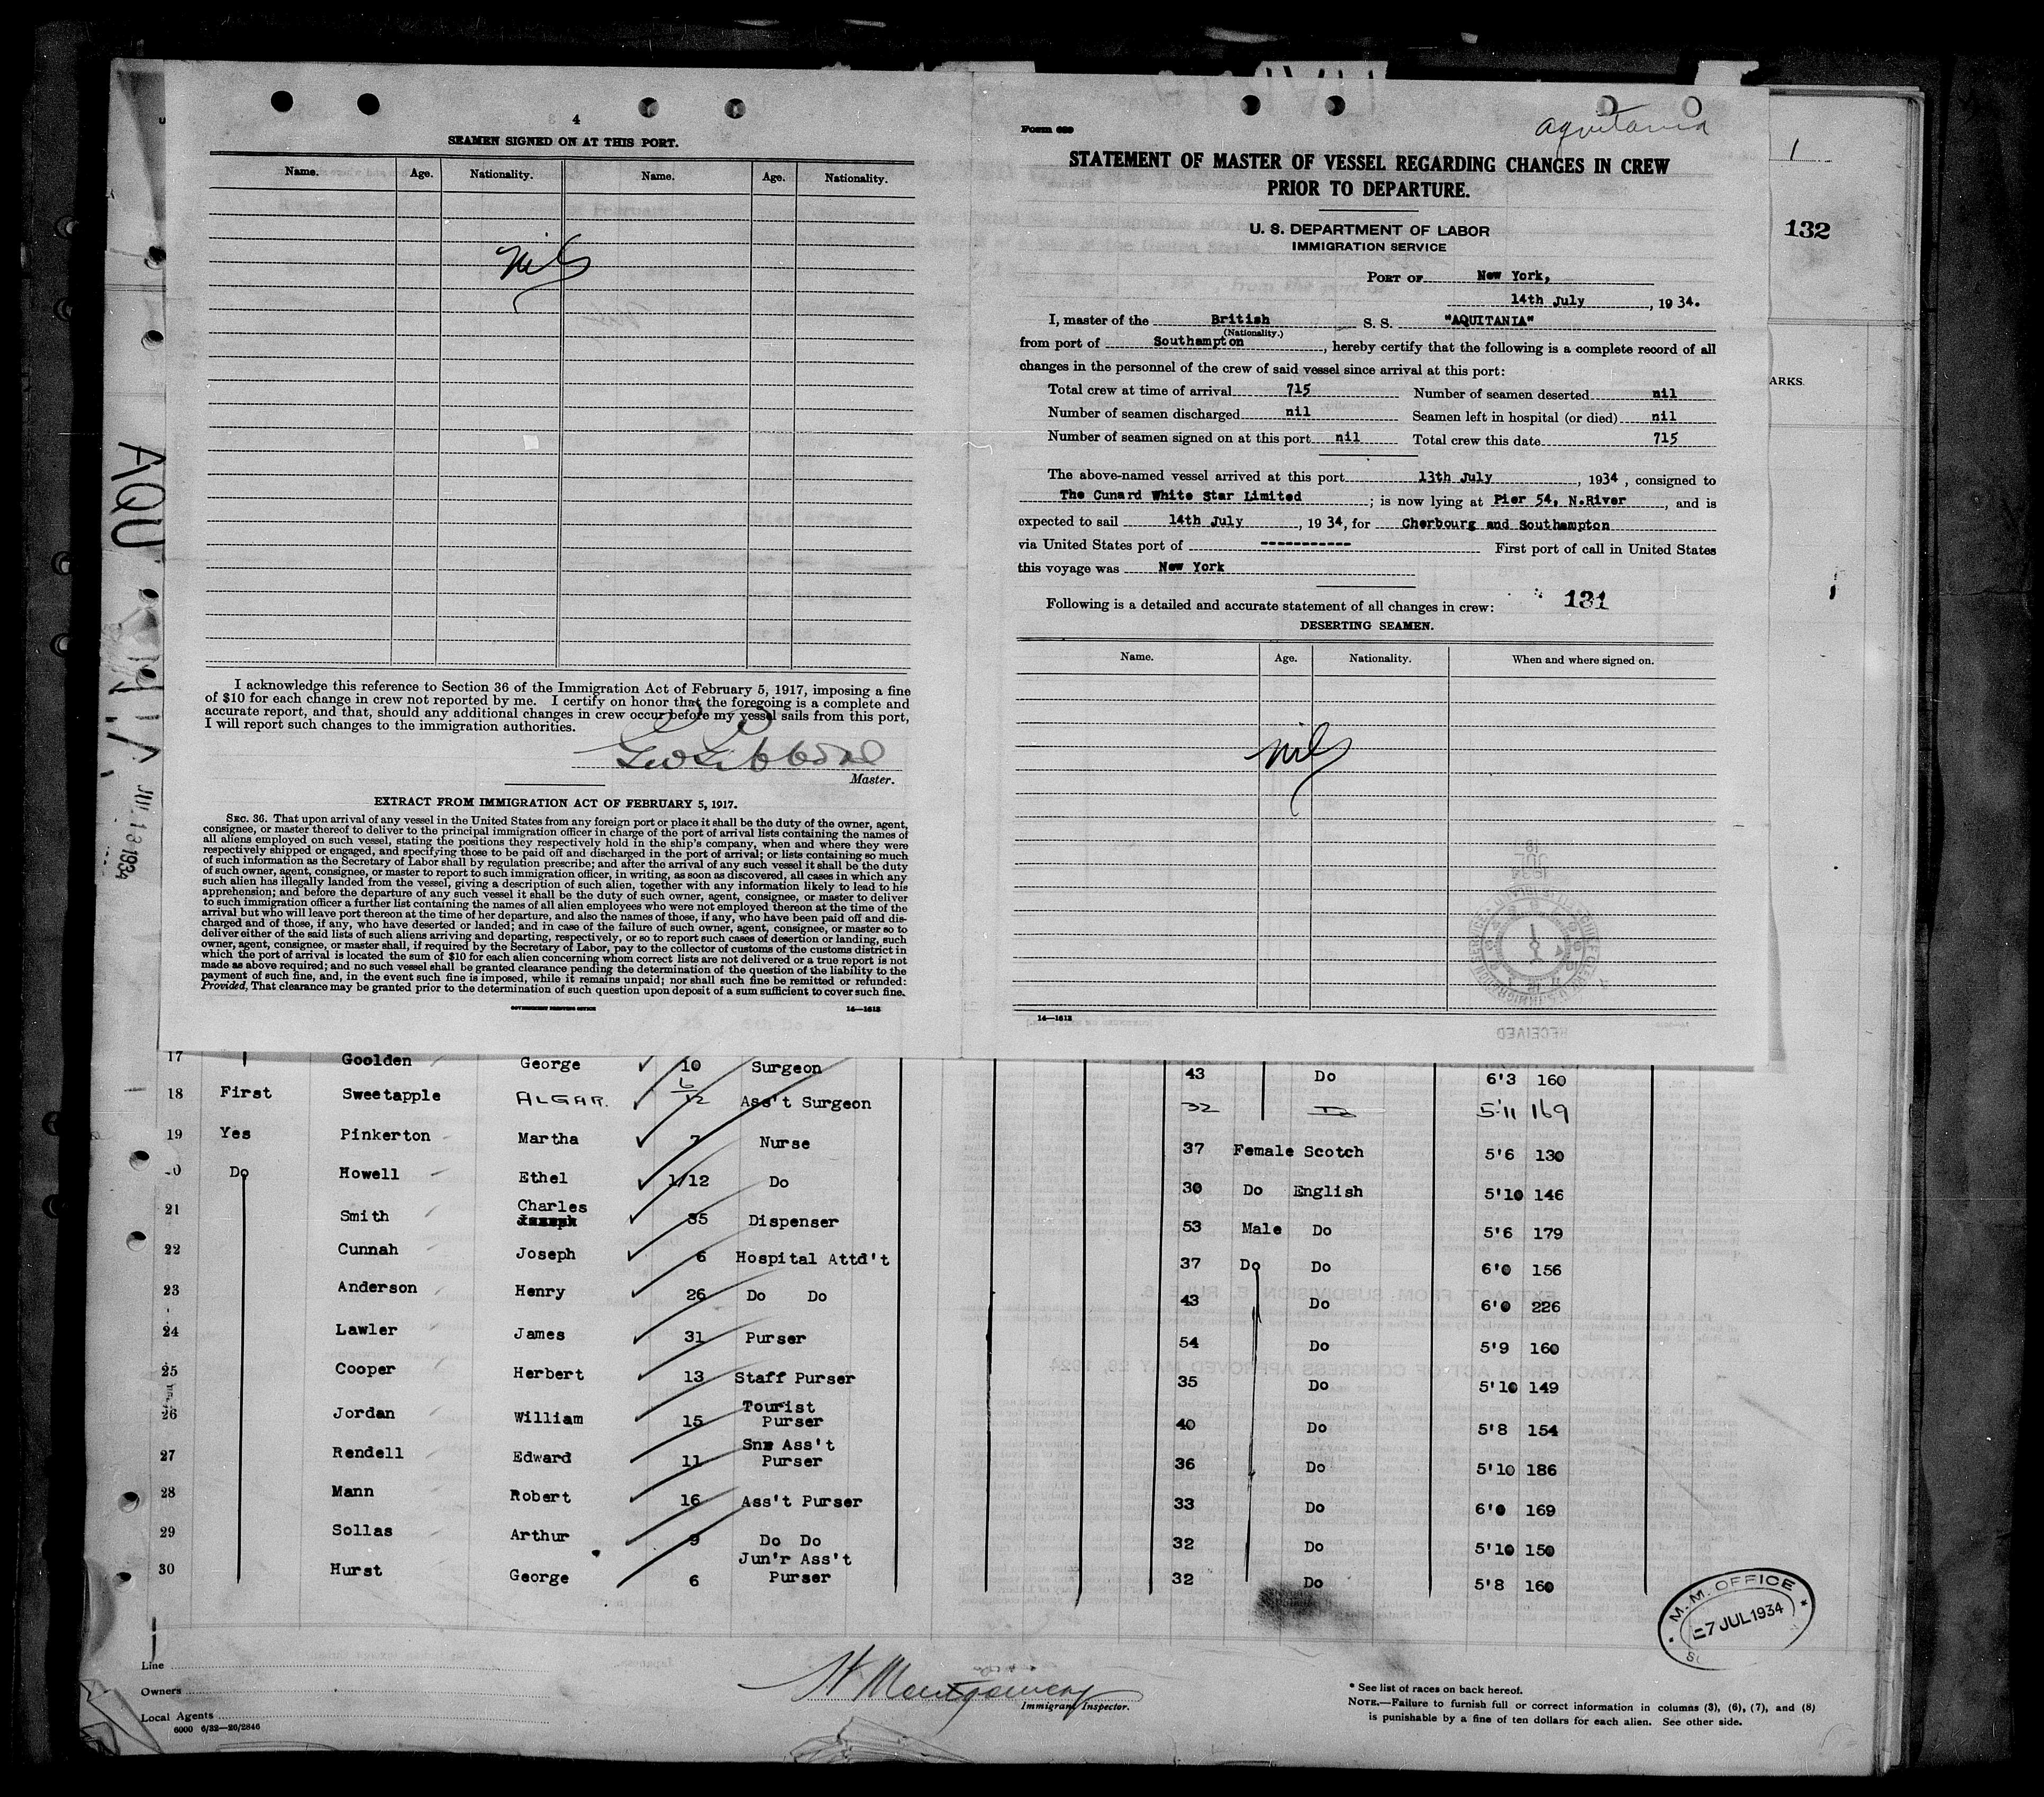 4
SEAMEN SIGNED ON AT THIS PORT.
Name. Age. Nationality. Name. Age. Nationality.
nil
I acknowledge this reference to Section 36 of the Immigration Act of February 5, 1917, imposing a fine
of $10 for each change in crew not reported by me. I certify on honor that the foregoing is a complete and
accurate report, and that, should any additional changes in crew occur before my vessel sails from this port,
I will report such changes to the immigration authorities.
Master.
EXTRACT FROM IMMIGRATION ACT OF FEBRUARY 5, 1917.
SEC. 36. That upon arrival of any vessel in the United States from any foreign port or place it shall be the duty of the owner, agent,
consignee, or master thereof to deliver to the principal immigration officer in charge of the port of arrival lists containing the names of
all aliens employed on such vessel, stating the positions they respectively hold in the ship's company, when and where they were
respectively shipped or engaged, and specifying those to be paid off and discharged in the port of arrival; or lists containing so much
of such information as the Secretary of Labor shall by regulation prescribe; and after the arrival of any such vessel it shall be the duty
of such owner, agent, consignee, or master to report to such immigration officer, in writing, as soon as discovered, all cases in which any
such alien has illegally landed from the vessel, giving a description of such alien, together with any information likely to lead to his
apprehension; and before the departure of any such vessel it shall be the duty of such owner, agent, consignee, or master to deliver
to such immigration officer a further list containing the names of all alien employees who were not employed thereon at the time of the
arrival but who will leave port thereon at the time of her departure, and also the names of those, if any, who have been paid off and dis-
charged and of those, if any, who have deserted or landed; and in case of the failure of such owner, agent, consignee, or master so to
deliver either of the said lists of such aliens arriving and departing, respectively, or so to report such cases of desertion or landing, such
owner, agent, consignee, or master shall, if required by the Secretary of Labor, pay to the collector of customs of the customs district in
which the port of arrival is located the sum of $10 for each alien concerning whom correct lists are not delivered or a true report is not
made as above required; and no such vessel shall be granted clearance pending the determination of the question of the liability to the
payment of such fine, and, in the event such fine is imposed, while it remains unpaid; nor shall such fine be remitted or refunded:
Provided, That clearance may be granted prior to the determination of such question upon deposit of a sum sufficient to cover such fine.
GOVERNMENT PRINTING OFFICE 14—1613
Form 689
Aquitania
STATEMENT OF MASTER OF VESSEL REGARDING CHANGES IN CREW
PRIOR TO DEPARTURE.
U. S. DEPARTMENT OF LABOR
IMMIGRATION SERVICE
PORT OF New York,
14th July, 1934.
I, master of the British S. S. "AQUITANIA"
(Nationality.)
from port of Southampton, hereby certify that the following is a complete record of all
changes in the personnel of the crew of said vessel since arrival at this port:
Total crew at time of arrival 715 Number of seamen deserted nil
Number of seamen discharged nil Seamen left in hospital (or died) nil
Number of seamen signed on at this port nil Total crew this date 715
The above-named vessel arrived at this port 13th July, 1934, consigned to
The Cunard White Star Limited; is now lying at Pier 54, N.River, and is
expected to sail 14th July, 1934, for Cherbourg and Southampton
via United States port of ----------- First port of call in United States
this voyage was New York
Following is a detailed and accurate statement of all changes in crew: 131
DESERTING SEAMEN.
Name. Age. Nationality. When and where signed on.
nil
14—1613
1
132
ARKS.
AQU
JUL 13 1934
17 Goolden George 10 Surgeon 43 Do 6'3 160
18 First Sweetapple ALGAR. 6/12 Ass't Surgeon 32 Do 5'11 169
19 Yes Pinkerton Martha 7 Nurse 37 Female Scotch 5'6 130
20 Do Howell Ethel 1/12 Do 30 Do English 5'10 146
21 Smith Charles Joseph 35 Dispenser 53 Male Do 5'6 179
22 Cunnah Joseph 6 Hospital Attd't 37 Do Do 6'0 156
23 Anderson Henry 26 Do Do 43 Do 6'0 226
24 Lawler James 31 Purser 54 Do 5'9 160
25 Cooper Herbert 13 Staff Purser 35 Do 5'10 149
26 Jordan William 15 Tourist Purser 40 Do 5'8 154
27 Rendell Edward 11 Snr Ass't Purser 36 Do 5'10 186
28 Mann Robert 16 Ass't Purser 33 Do 6'0 169
29 Sollas Arthur 9 Do Do 32 Do 5'10 150
30 Hurst George 6 Jun'r Ass't Purser 32 Do 5'8 160
M. M. OFFICE
7 JUL 1934
Line
Owners
Local Agents
6000 6/32—26/2846
H Montgomery
Immigrant Inspector.
* See list of races on back hereof.
NOTE.—Failure to furnish full or correct information in columns (3), (6), (7), and (8)
is punishable by a fine of ten dollars for each alien. See other side.